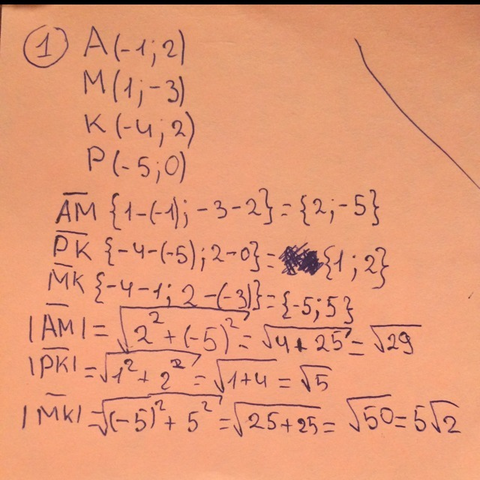 ① A(-1; 2)
M(1; -3)
K(-4; 2)
P(-5; 0)
A̅M̅ {1-(-1); -3-2} = {2; -5}
P̅K̅ {-4-(-5); 2-0} = {1; 2}
M̅K̅ {-4-1; 2-(-3)} = {-5; 5}
|A̅M̅| = √(2² + (-5)²) = √(4 + 25) = √29
|P̅K̅| = √(1² + 2²) = √(1+4) = √5
|M̅K̅| = √((-5)² + 5²) = √(25+25) = √50 = 5√2